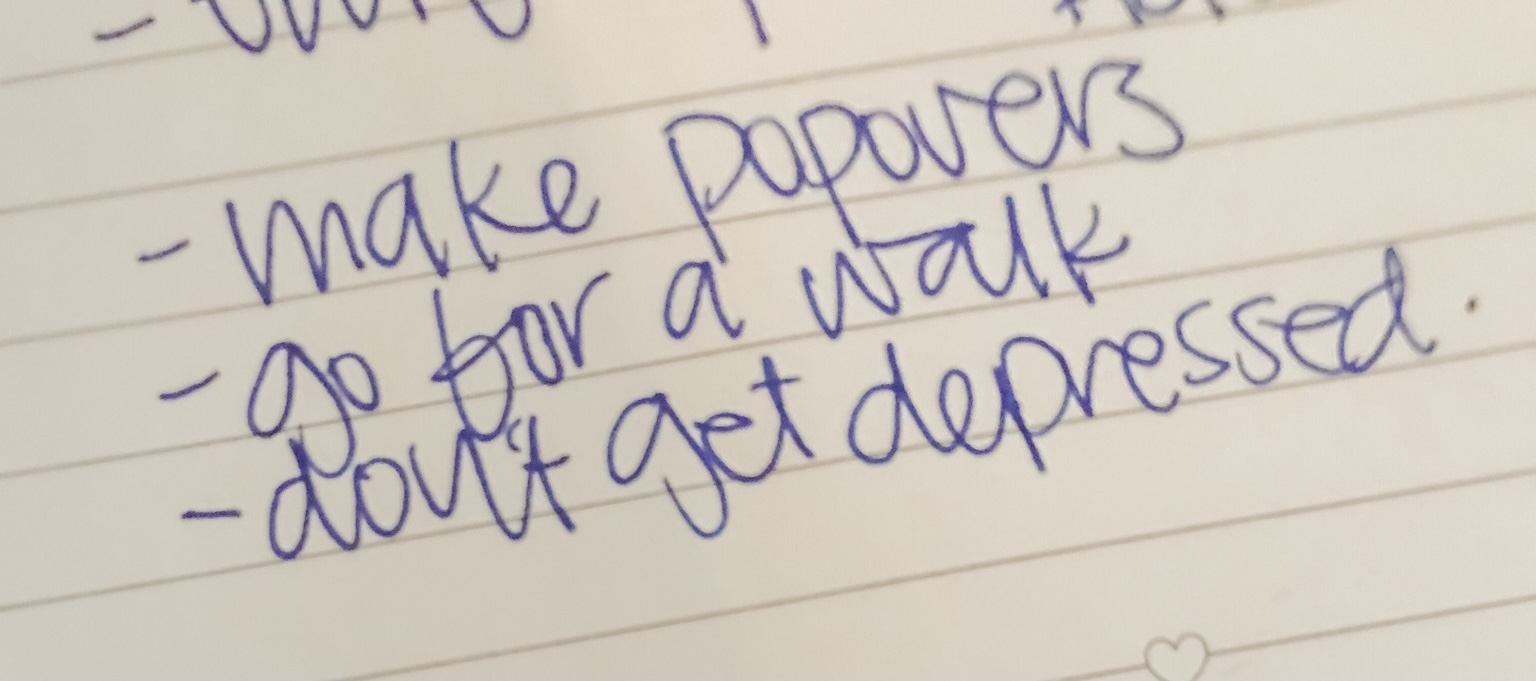 - make popovers
- go for a walk
- don't get depressed.